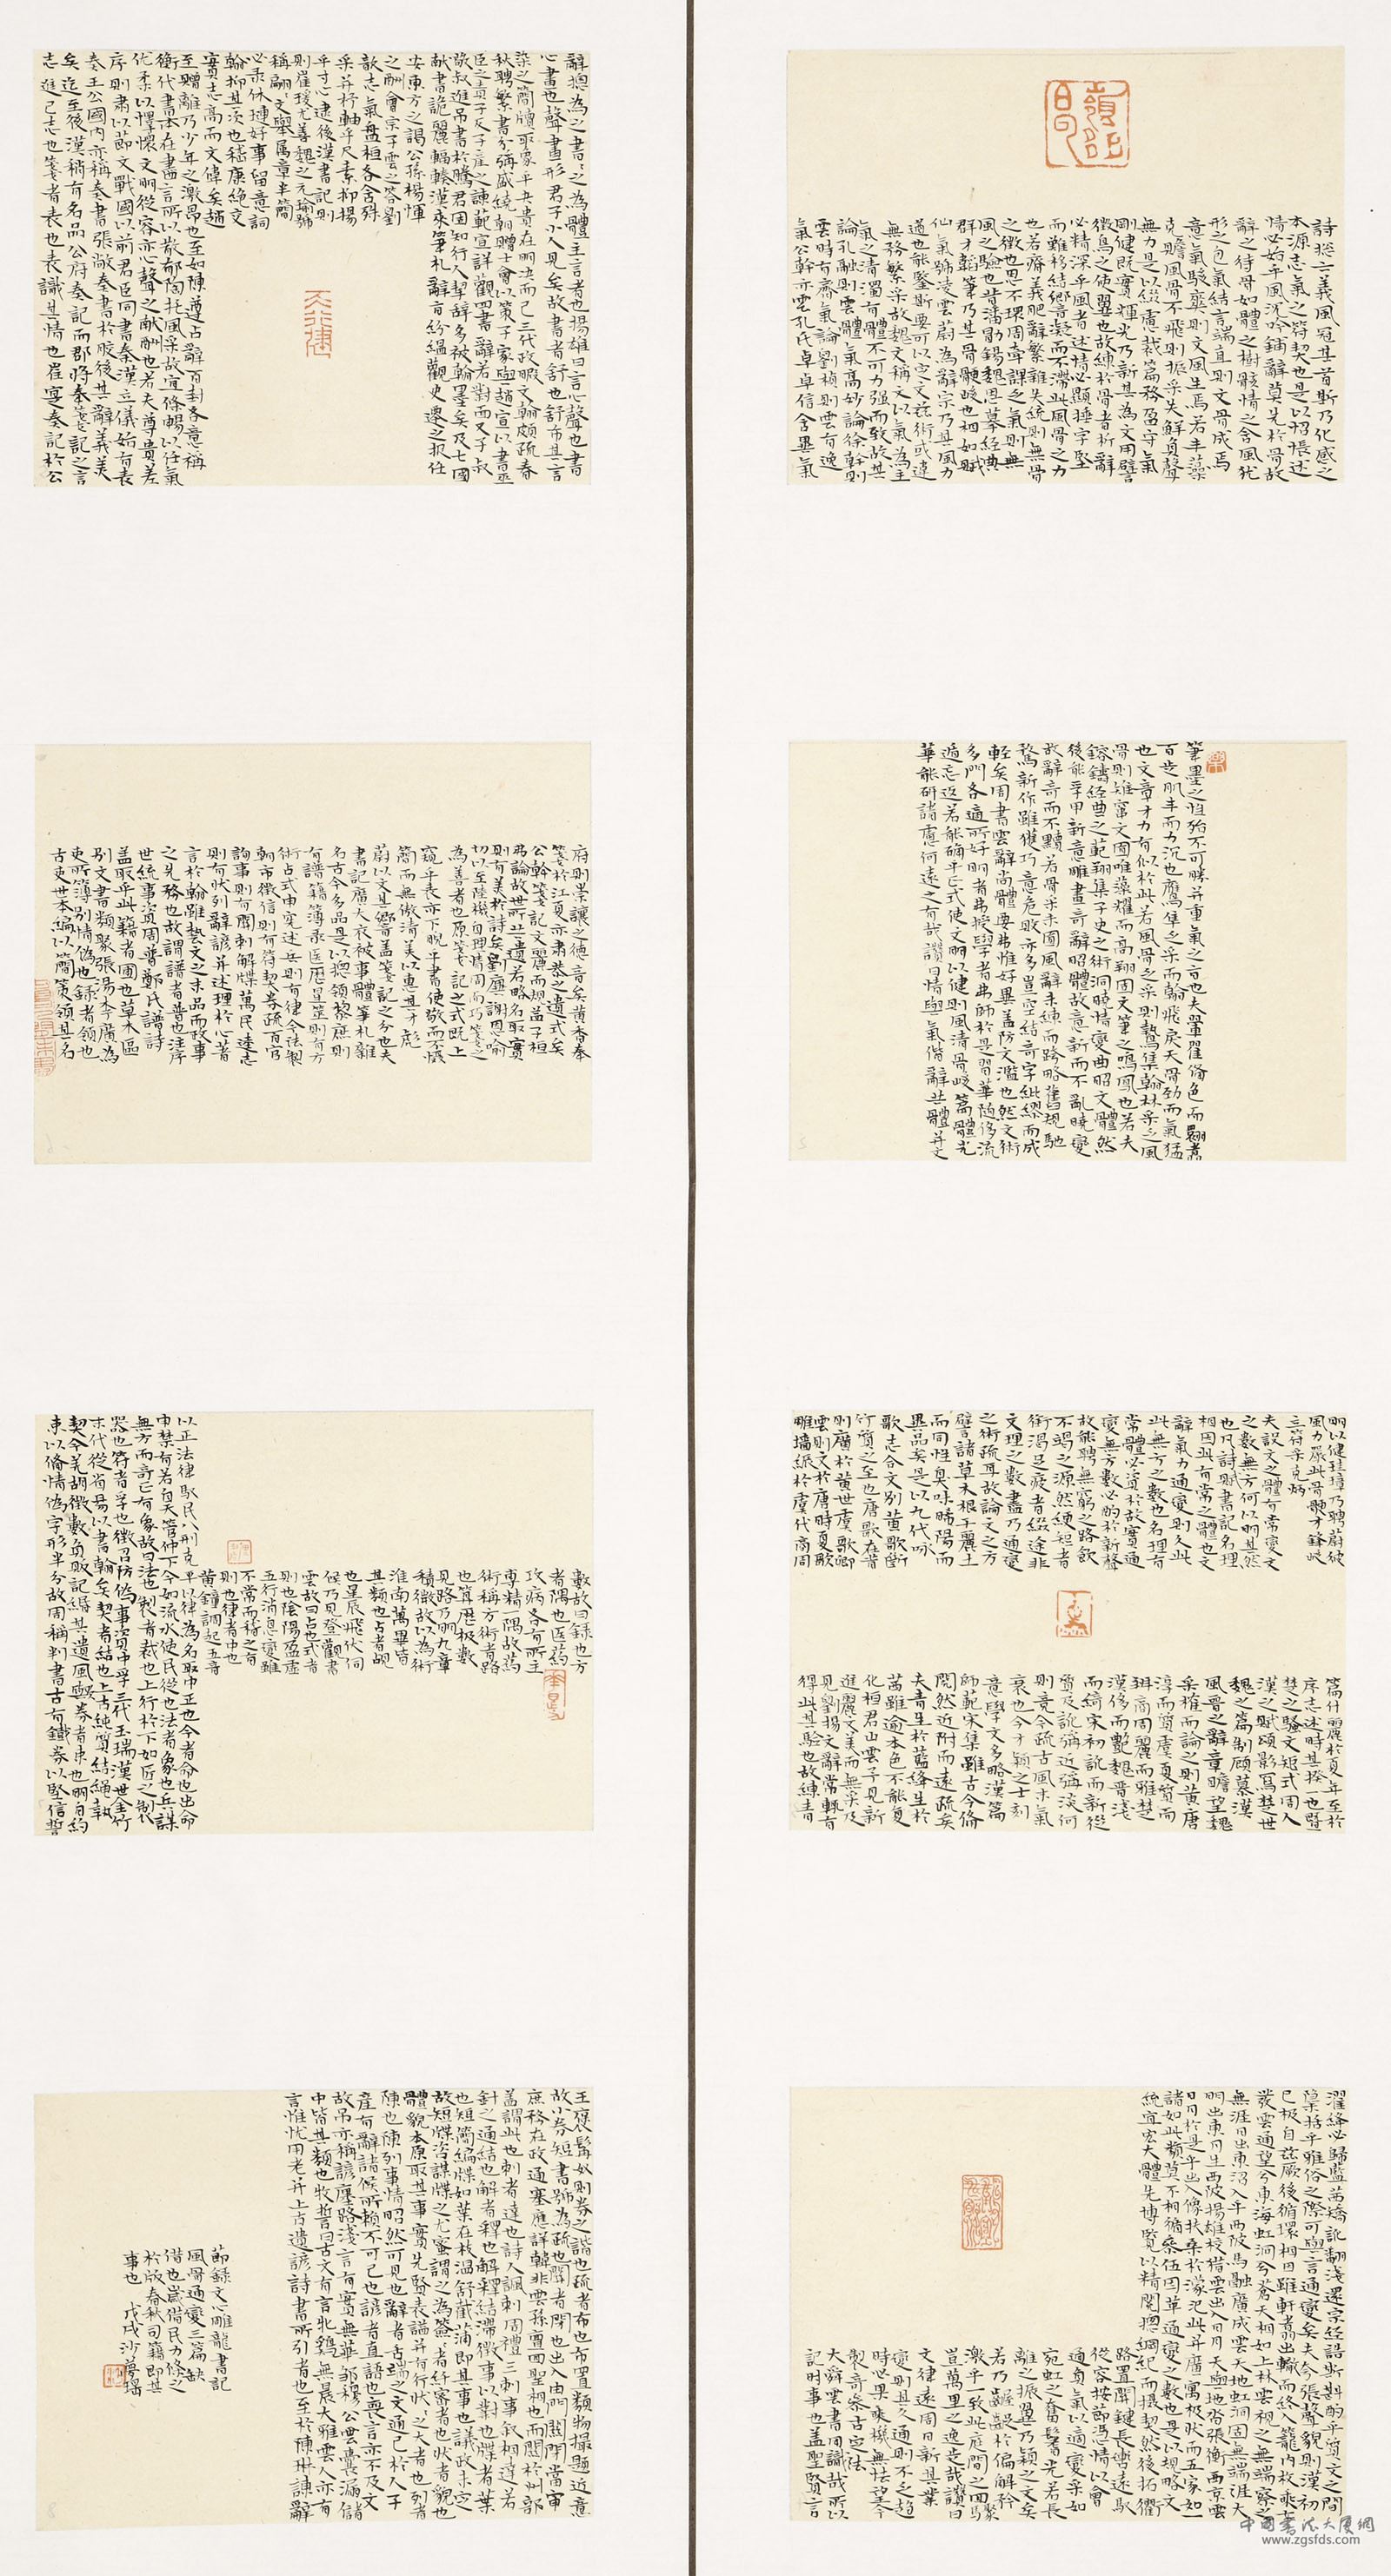 詩揔六義風冠其首斯乃化感之
本源志氣之符契也是以怊悵述
情必始乎風沈吟鋪辭莫先於骨故
辭之待骨如體之樹骸情之含風犹
形之包氣結言端直則文骨成焉
意氣駿爽則文風生焉若丰藻
克贍風骨不飛則振采失鮮負聲
無力是以綴慮裁篇務盈守氣
剛健既實輝光乃新其為文用譬
徵鳥之使翼也故練於骨者析辭
必精深乎風者述情必顯捶字堅
而難移結響凝而不滯此風骨之力
也若瘠義肥辭繁雜失統則無骨
之徵也思不環周牽課乏氣則無
風之驗也昔潘勖錫魏思摹經典
群才韜筆乃其骨髓峻也相如賦
仙氣號凌雲蔚為辭宗乃其風力
遒也能鑒斯要可以定文兹術或違
無務繁采故魏文稱文以氣為主
氣之清濁有體不可力强而致故其
論孔融則雲體氣高妙論徐幹則
雲時有齊氣論劉楨則雲有逸
氣公幹亦雲孔氏卓卓信含異氣
筆墨之性殆不可勝并重氣之旨也夫翬翟備色而翾翥
百步肌丰而力沉也鷹隼乏采而翰飛戾天骨勁而氣猛
也文章才力有似於此若風骨乏采則鷙集翰林采乏風
骨則雉竄文囿唯藻耀而高翔固文筆之鳴鳳也若夫
鎔鑄經典之範翔集子史之術洞曉情變曲昭文體然
後能孚甲新意雕畫奇辭昭體故意新而不亂曉變
故辭奇而不黷若骨采未圓風辭未練而跨略舊規馳
騖新作雖獲巧意危敗亦多豈空結奇字紕繆而成
輕矣周書雲辭尚體要弗惟好異盖防文濫也然文術
多門各適所好明者弗授學者弗師於是習華随侈流
遁忘返若能确乎正式使文明以健則風清骨峻篇體光
華能研諸慮何遠之有哉讚曰情與氣偕辭共體并文
明以健珪璋乃聘蔚彼
風力嚴此骨髓才鋒峻
立符采克炳
夫設文之體有常變文
之數無方何以明其然
也凡詩賦書記名理
相因此有常之體也文
辭氣力通變則久此
此無方之數也名理有
常體必資於故實通
變無方數必酌於新聲
故能騁無窮之路飲
不竭之源然綆短者
銜渴足疲者輟途非
文理之數盡乃通變
之術疏耳故論文之方
譬諸草木根干麗土
而同性臭味晞陽而
異品矣是以九代咏
歌志合文别黄歌斷
竹質之至也唐歌在昔
則廣於黄世虞歌卿
雲則文於唐時夏歌
雕墙縟於虞代商周
篇什麗於夏年至於
序志述時其揆一也暨
楚之騷文矩式周人
漢之賦頌影寫楚世
魏之篇制顧慕漢
風晋之辭章瞻望魏
采榷而論之則黄唐
淳而質虞夏質而
辨商周麗而雅楚
漢侈而艷魏晋淺
而綺宋初訛而新從
質及訛稱近弥淡何
則竟今疏古風末氣
衰也今才穎之士刻
意學文多略漢篇
師範宋集雖古今備
閲然近附而遠疏矣
夫青生於藍絳生於
茜雖逾本色不能復
化桓君山雲予見新
進麗文美而無采及
見劉揚文辭常輒有
得此其驗也故練青
濯絳必歸藍茜矯訛翻淺還宗經誥斯斟酌乎質文之間
檃括乎雅俗之際可與言通變矣夫夸張聲貌則漢初
已極自兹厥後循環相因雖軒翥出轍而終入籠内枚乘七
發雲通望兮東海虹洞兮蒼天相如上林雲視之無端察之
無涯日出東沼入乎西陂馬融廣成雲天地虹洞固無端涯大
明出東月生西陂揚雄校獵雲出入日月天與地沓張衡西京雲
日月於是乎出入像扶桑於濛汜此并廣寓极状而五家如一
諸如此類莫不相循參伍因革通變之數也是以規略文
統宜宏大體先博覽以精閲揔綱紀而攝契然後拓衢
路置關鍵長轡遠馭
從容按節憑情以會
通負氣以適變采如
宛虹之奮鬐光若長
離之振翼乃穎之文矣
若乃齷齪於偏解矜
激乎一致此庭間之回驟
豈萬里之逸步哉讚曰
文律運周日新其業
變則其久通則不乏趨
時必果乘機無怯望今
製奇參古定法
大舜雲書用識哉所以
記时事也盖聖賢言
辭揔為之書書之為體主言者也揚雄曰言心聲也書
心畫也聲畫形君子小人見矣故書者舒也舒布其言
染之簡牘取象乎夬貴在明决而已三代政暇文翰頗疏春
秋聘繁書介弥盛繞朝贈士會以策子家與趙宣以書巫
臣之責子反子産之諫範宣詳觀四書辭若對面又子叔
敬叔進吊書於滕君固知行人挈辭多被翰墨矣及七國
献書詭麗輻輳漢來筆札辭旨紛緼觀史遷之报任
安東方之謁公孫楊惲
之酬會宗子雲之答劉
歆志氣盘桓各含殊
采并杼軸乎尺素抑揚
乎寸心逮後漢書記則
則崔瑗尤善魏之元瑜號
稱翩翩文舉属章半簡
必录休璉好事留意詞
翰抑其次也嵇康絶交
實志高而文偉矣趙
至贈離乃少年之激昂也至如陳遵占辭百封各意祢
衡代書本在盡言所以散郁陶托風采故宜條暢以任氣
优柔以懌懷文明從容亦心聲之献酬也若夫尊貴差
序則肃以節文戰國以前君臣同書秦漢立儀始有表
奏王公國内亦稱奏書張敞奏書於胶後其辭義美
矣迄至後漢稍有名品公府奏記而郡將奏箋記之言
志進己志也箋者表也表識其情也崔寔奏記於公
府則崇讓之德音矣黄香奉
箋於江夏亦肃恭之遺式矣
公幹箋記文麗而規益子桓
弗論故世所共遺若略名取實
則有美於詩矣劉廙謝恩喻
切以至陸機自理情周而巧箋之
為善者也原箋記之式既上
窺乎表亦下睨乎書使敬而不懾
簡而無傲清美以惠其才彪
蔚以文其響盖箋記之分也夫
書記廣大衣被事體筆札雜
名古今多品是以揔領黎庶則
有譜籍簿录医歷星筮則有方
術占式申宪述兵則有律令法製
朝市徵信則有符契券疏百官
詢事則有關刺解牒萬民達志
則有状列辭諺并述理於心著
言於翰雖藝文之末品而政事
之先務也故謂譜者普也注序
世統事資周普鄭氏譜詩
盖取乎此籍者圃也草木區
别文書類聚張湯李廣為
吏所簿别情偽也録者領也
古史世本編以簡策領其名
數故曰録也方
者隅也医药
攻病各有所主
專精一隅故药
術稱方術者路
也算歷极數
見路乃明九章
積微故以為術
淮南萬畢皆
其類也占者覘
也星辰飛伏伺
候乃見登觀書
雲故曰占也式者
則也陰陽盈虚
五行消息變雖
不常而稽之有
則也律者中也
黄鐘調起五音
以正法律馭民八刑克平以律為名取中正也令者命也出命
申禁有若自天管仲下令如流水使民從也法者象也兵謀
無方而奇正有象故曰法也製者裁也上行於下如匠之制
器也符者孚也徵召防偽事資中孚三代玉瑞漢世金竹
末代從省易以書翰矣契者結也上古純質結繩執
契今羌胡徵數負販記緡其遺風與券者束也明白約
束以備情偽字形半分故周稱判書古有鐵券以堅信誓
王褒髯奴則券之諧也疏者布也布置類物撮題近意
故小券短書號為疏也關者閉也出入由門關閉當審
庶務在政通塞應詳韓非雲孫亶回聖相也而關於州部
盖謂此也刺者達也詩人諷刺周禮三刺事叙相達若
針之通結也解者釋也解釋結滯徵事以對也牒者葉
也短簡編牒如葉在枝温舒截蒲即其事也議政未定
故短牒咨謀牒之尤密謂之為簽簽者纤密者也状者貌也
體貌本原取其事實先賢表謚并有行状状之大者也列者
陳也陳列事情昭然可見也辭者舌端之文通己於人子
産有辭諸候所賴不可已也諺者直語也喪言亦不及文
故吊亦稱諺廛路淺言有實無華鄒穆公雲囊漏儲
中皆其類也牧誓曰古文有言牝鷄無晨大雅雲人亦有
言惟忧用老并上古遺諺詩書所引者也至於陳琳諫辭
節録文心雕龍書記
風骨通變三篇缺
借也歲借民力條之
於版春秋司籍即其
事也 戊戌沙夢瑶
中國書法大厦網
www.zgsfds.com